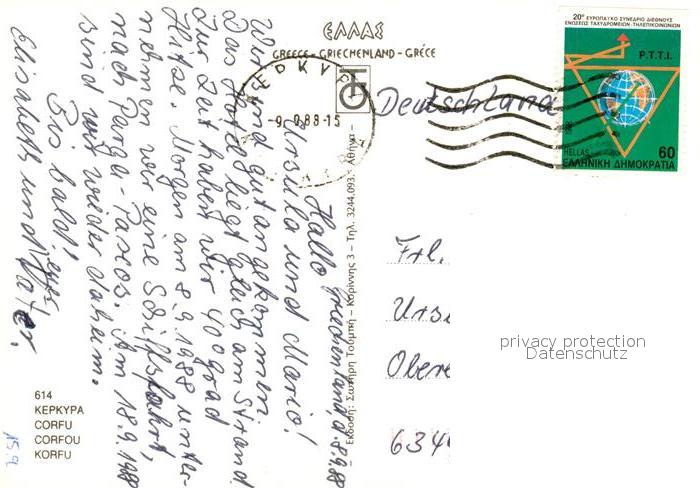 ΕΛΛΑΣ
GREECE - GRIECHENLAND - GRÈCE
20º ΕΥΡΩΠΑΪΚΟ ΣΥΝΕΔΡΙΟ ΔΙΕΘΝΟΥΣ
ΕΝΩΣΕΩΣ ΤΑΧΥΔΡΟΜΕΙΩΝ-ΤΗΛΕΠΙΚΟΙΝΩΝΙΩΝ
P.T.T.I.
HELLAS
60
ΕΛΛΗΝΙΚΗ ΔΗΜΟΚΡΑΤΙΑ
88-15
Deutschland
Griechenland d. 8.9.88
Hallo
Ursula und Mario!
Wir sind gut angekommen
Das Hotel liegt gleich am Strand
Zur Zeit haben wir 40 Grad
Hitze. Morgen am 8.9.1988 unter-
nehmen wir eine Schiffsfahrt,
nach Parga-Paxos. Am 18.9.1988
sind wir wieder daheim.
Bis bald, eure
Elisabeth und Vater.
Εκδοση: Σωτήρη Τουμπή – Κορίννης 3 – Τηλ. 3244.093 – Αθήνα –
Frl.
Urs
Obere
634
privacy protection
Datenschutz
614
ΚΕΡΚΥΡΑ
CORFU
CORFOU
KORFU
15.9